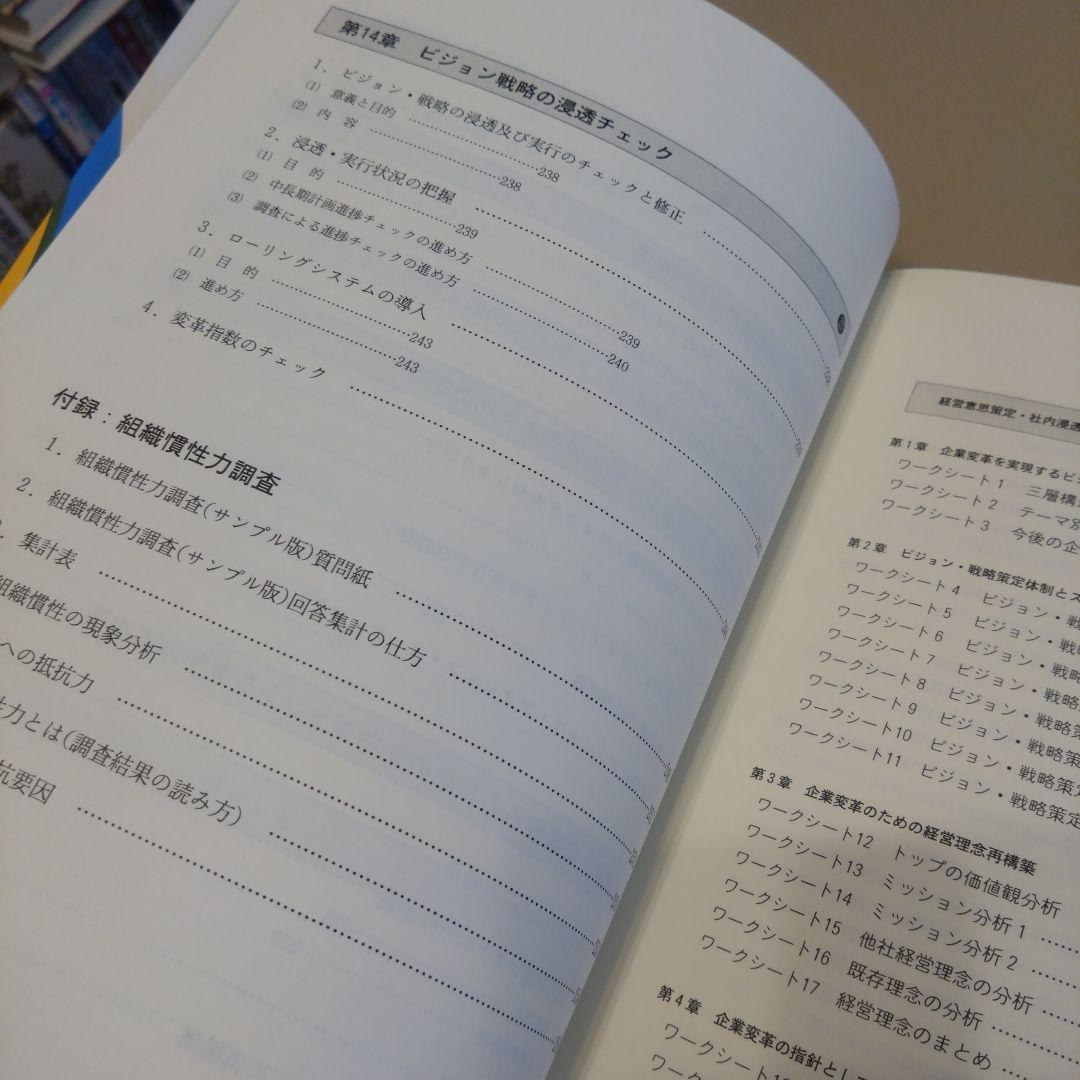 第14章 ビジョン戦略の浸透チェック
1. ビジョン・戦略の浸透及び実行のチェックと修正
(1) 意義と目的 238
(2) 内 容 238
2. 浸透・実行状況の把握
(1) 目 的 239
(2) 中長期計画進捗チェックの進め方 239
(3) 調査による進捗チェックの進め方 240
3. ローリングシステムの導入
(1) 目 的 243
(2) 進め方 243
4. 変革指数のチェック
付録：組織慣性力調査
1. 組織慣性力調査(サンプル版)質問紙
2. 組織慣性力調査(サンプル版)回答集計の仕方
集計表
組織慣性の現象分析
への抵抗力
力とは(調査結果の読み方)
抗要因
経営意思策定・社内浸透
第1章 企業変革を実現するビジ
ワークシート1 三層構
ワークシート2 テーマ別
ワークシート3 今後の企
第2章 ビジョン・戦略策定体制とス
ワークシート4 ビジョン・戦
ワークシート5 ビジョン・戦略
ワークシート6 ビジョン・戦略
ワークシート7 ビジョン・戦略
ワークシート8 ビジョン・戦略
ワークシート9 ビジョン・戦略策
ワークシート10 ビジョン・戦略策定
ワークシート11 ビジョン・戦略策定
第3章 企業変革のための経営理念再構築
ワークシート12 トップの価値観分析
ワークシート13 ミッション分析1
ワークシート14 ミッション分析2
ワークシート15 他社経営理念の分析
ワークシート16 既存理念の分析
ワークシート17 経営理念のまとめ
第4章 企業変革の指針とし
ワークシート